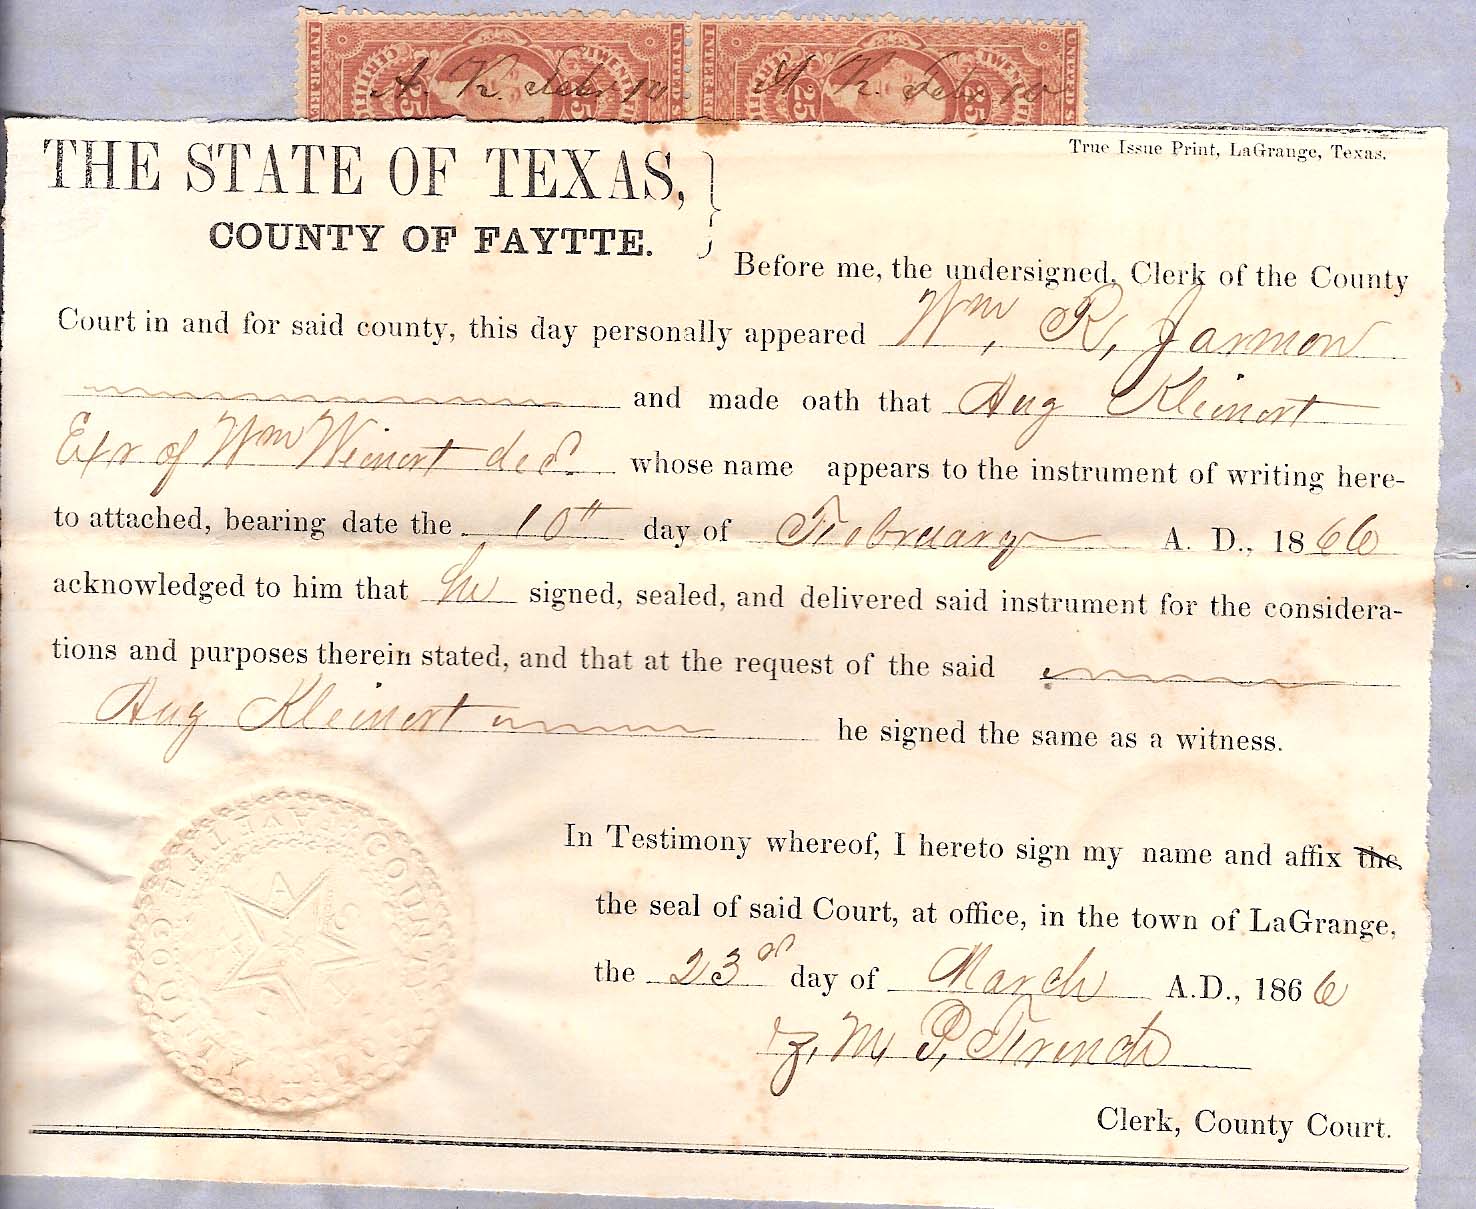 A. K. Feby 10 A. K. Feby 10
True Issue Print, LaGrange, Texas.
THE STATE OF TEXAS,
COUNTY OF FAYTTE.
Before me, the undersigned, Clerk of the County
Court in and for said county, this day personally appeared Wm, R, Jarmon
and made oath that Aug Kleinert
Exr of Wm Weinert decd whose name appears to the instrument of writing here-
to attached, bearing date the 10th day of February A. D., 1866
acknowledged to him that he signed, sealed, and delivered said instrument for the considera-
tions and purposes therein stated, and that at the request of the said
Aug Kleinert he signed the same as a witness.
In Testimony whereof, I hereto sign my name and affix the
the seal of said Court, at office, in the town of LaGrange,
the 23d day of March A.D., 1866
Z, M, P, French
Clerk, County Court.